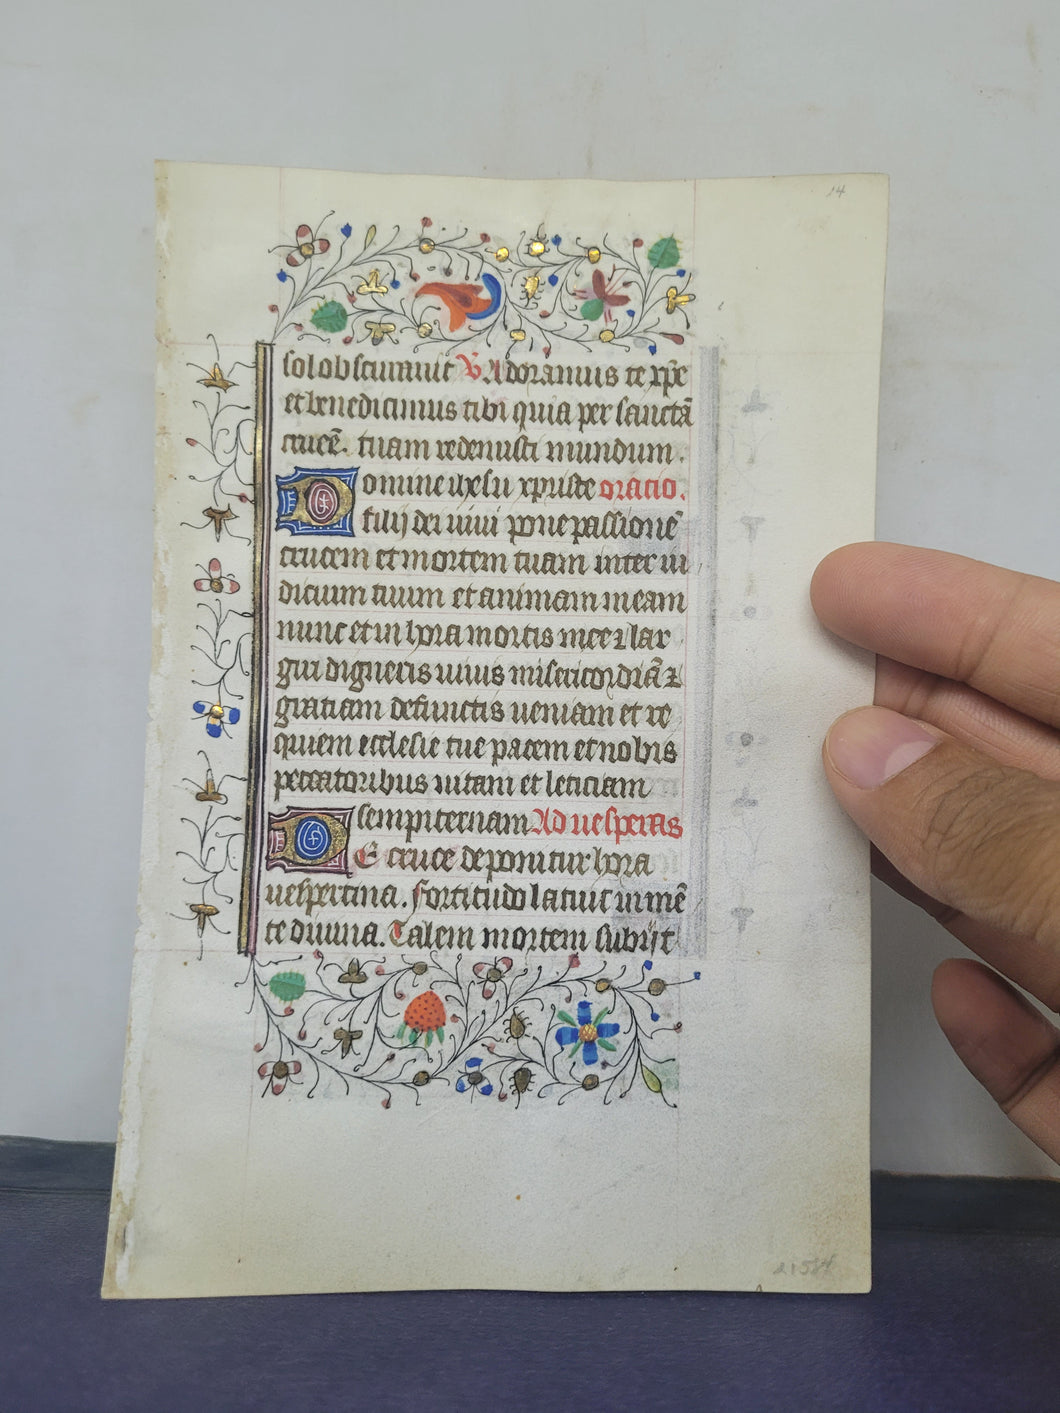 14
sol obscuravit V Adoramus te xp̄e
et benedicimus tibi quia per sanctā
crucē. tuam redemisti mundum.
Domine ihesu xpriste oracio.
filij dei vivi pone passionē
crucem et mortem tuam inter iu
dicium tuum et animam meam
nunc et in hora mortis mee ⁊ lar
giri digneris vivis misericordiā ⁊
gratiam defunctis veniam et re
quiem ecclesie tue pacem et nobis
peccatoribus vitam et leticiam
sempiternam Ad vesperas
De cruce deponitur hora
vespertina. fortitudo latuit in mē
te divina. Talem mortem subijt